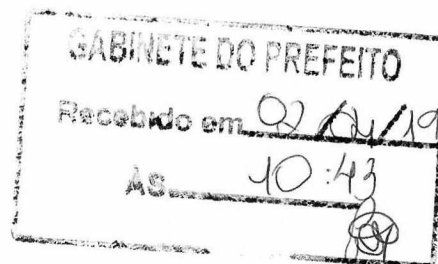 GABINETE DO PREFEITO
Recebido em 02/04/19
ÀS 10:43